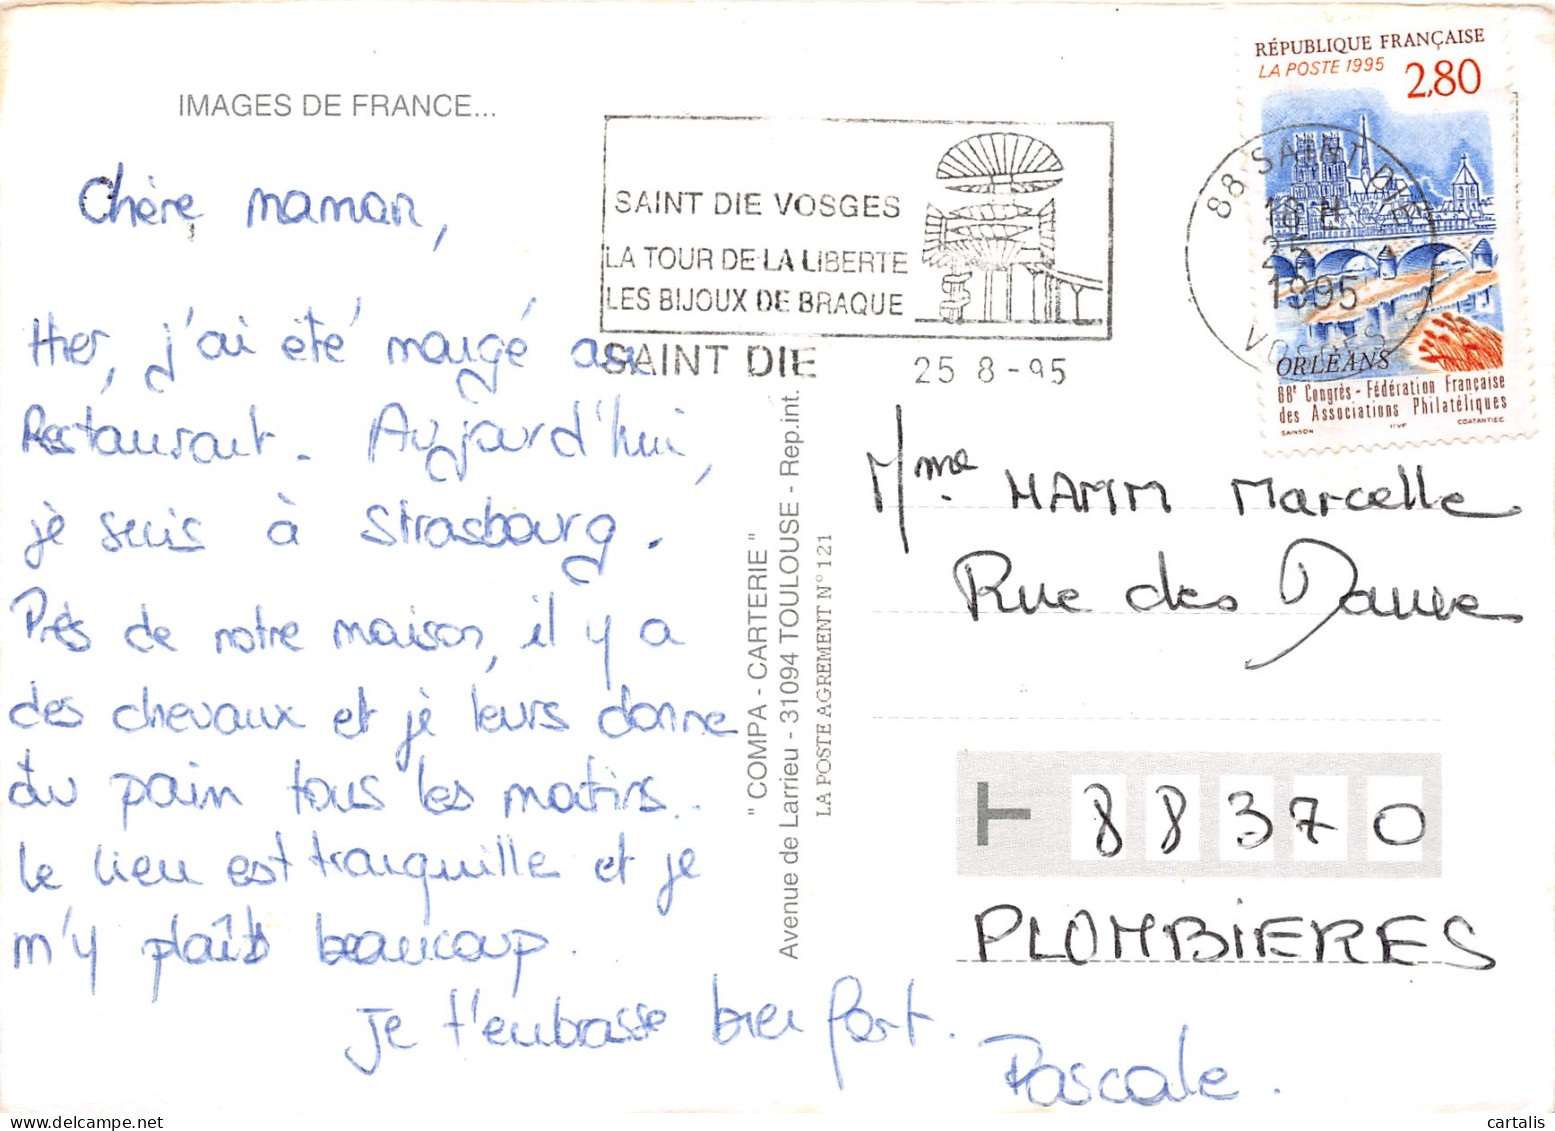 IMAGES DE FRANCE...
Chère maman,
Hier, j'ai été mangé au
Restaurant. Aujourd'hui,
je suis à Strasbourg.
Près de notre maison, il y a
des chevaux et je leurs donne
du pain tous les matins.
Le lieu est tranquille et je
m'y plaîts beaucoup.
Je t'embrasse bien fort.
Pascale.
SAINT DIE VOSGES
LA TOUR DE LA LIBERTE
LES BIJOUX DE BRAQUE
SAINT DIE 25 8 -95
RÉPUBLIQUE FRANÇAISE
LA POSTE 1995
2,80
88 SAINT DIE
18 H
25
1995
VOSGES
ORLÉANS
68e Congrès - Fédération Française
des Associations Philatéliques
SAINSON ITVF COATANTIEC
" COMPA - CARTERIE "
Avenue de Larrieu - 31094 TOULOUSE - Rep.int.
LA POSTE AGREMENT N° 121
Mme HAMM Marcelle
Rue des
88370
PLOMBIERES
cartalis